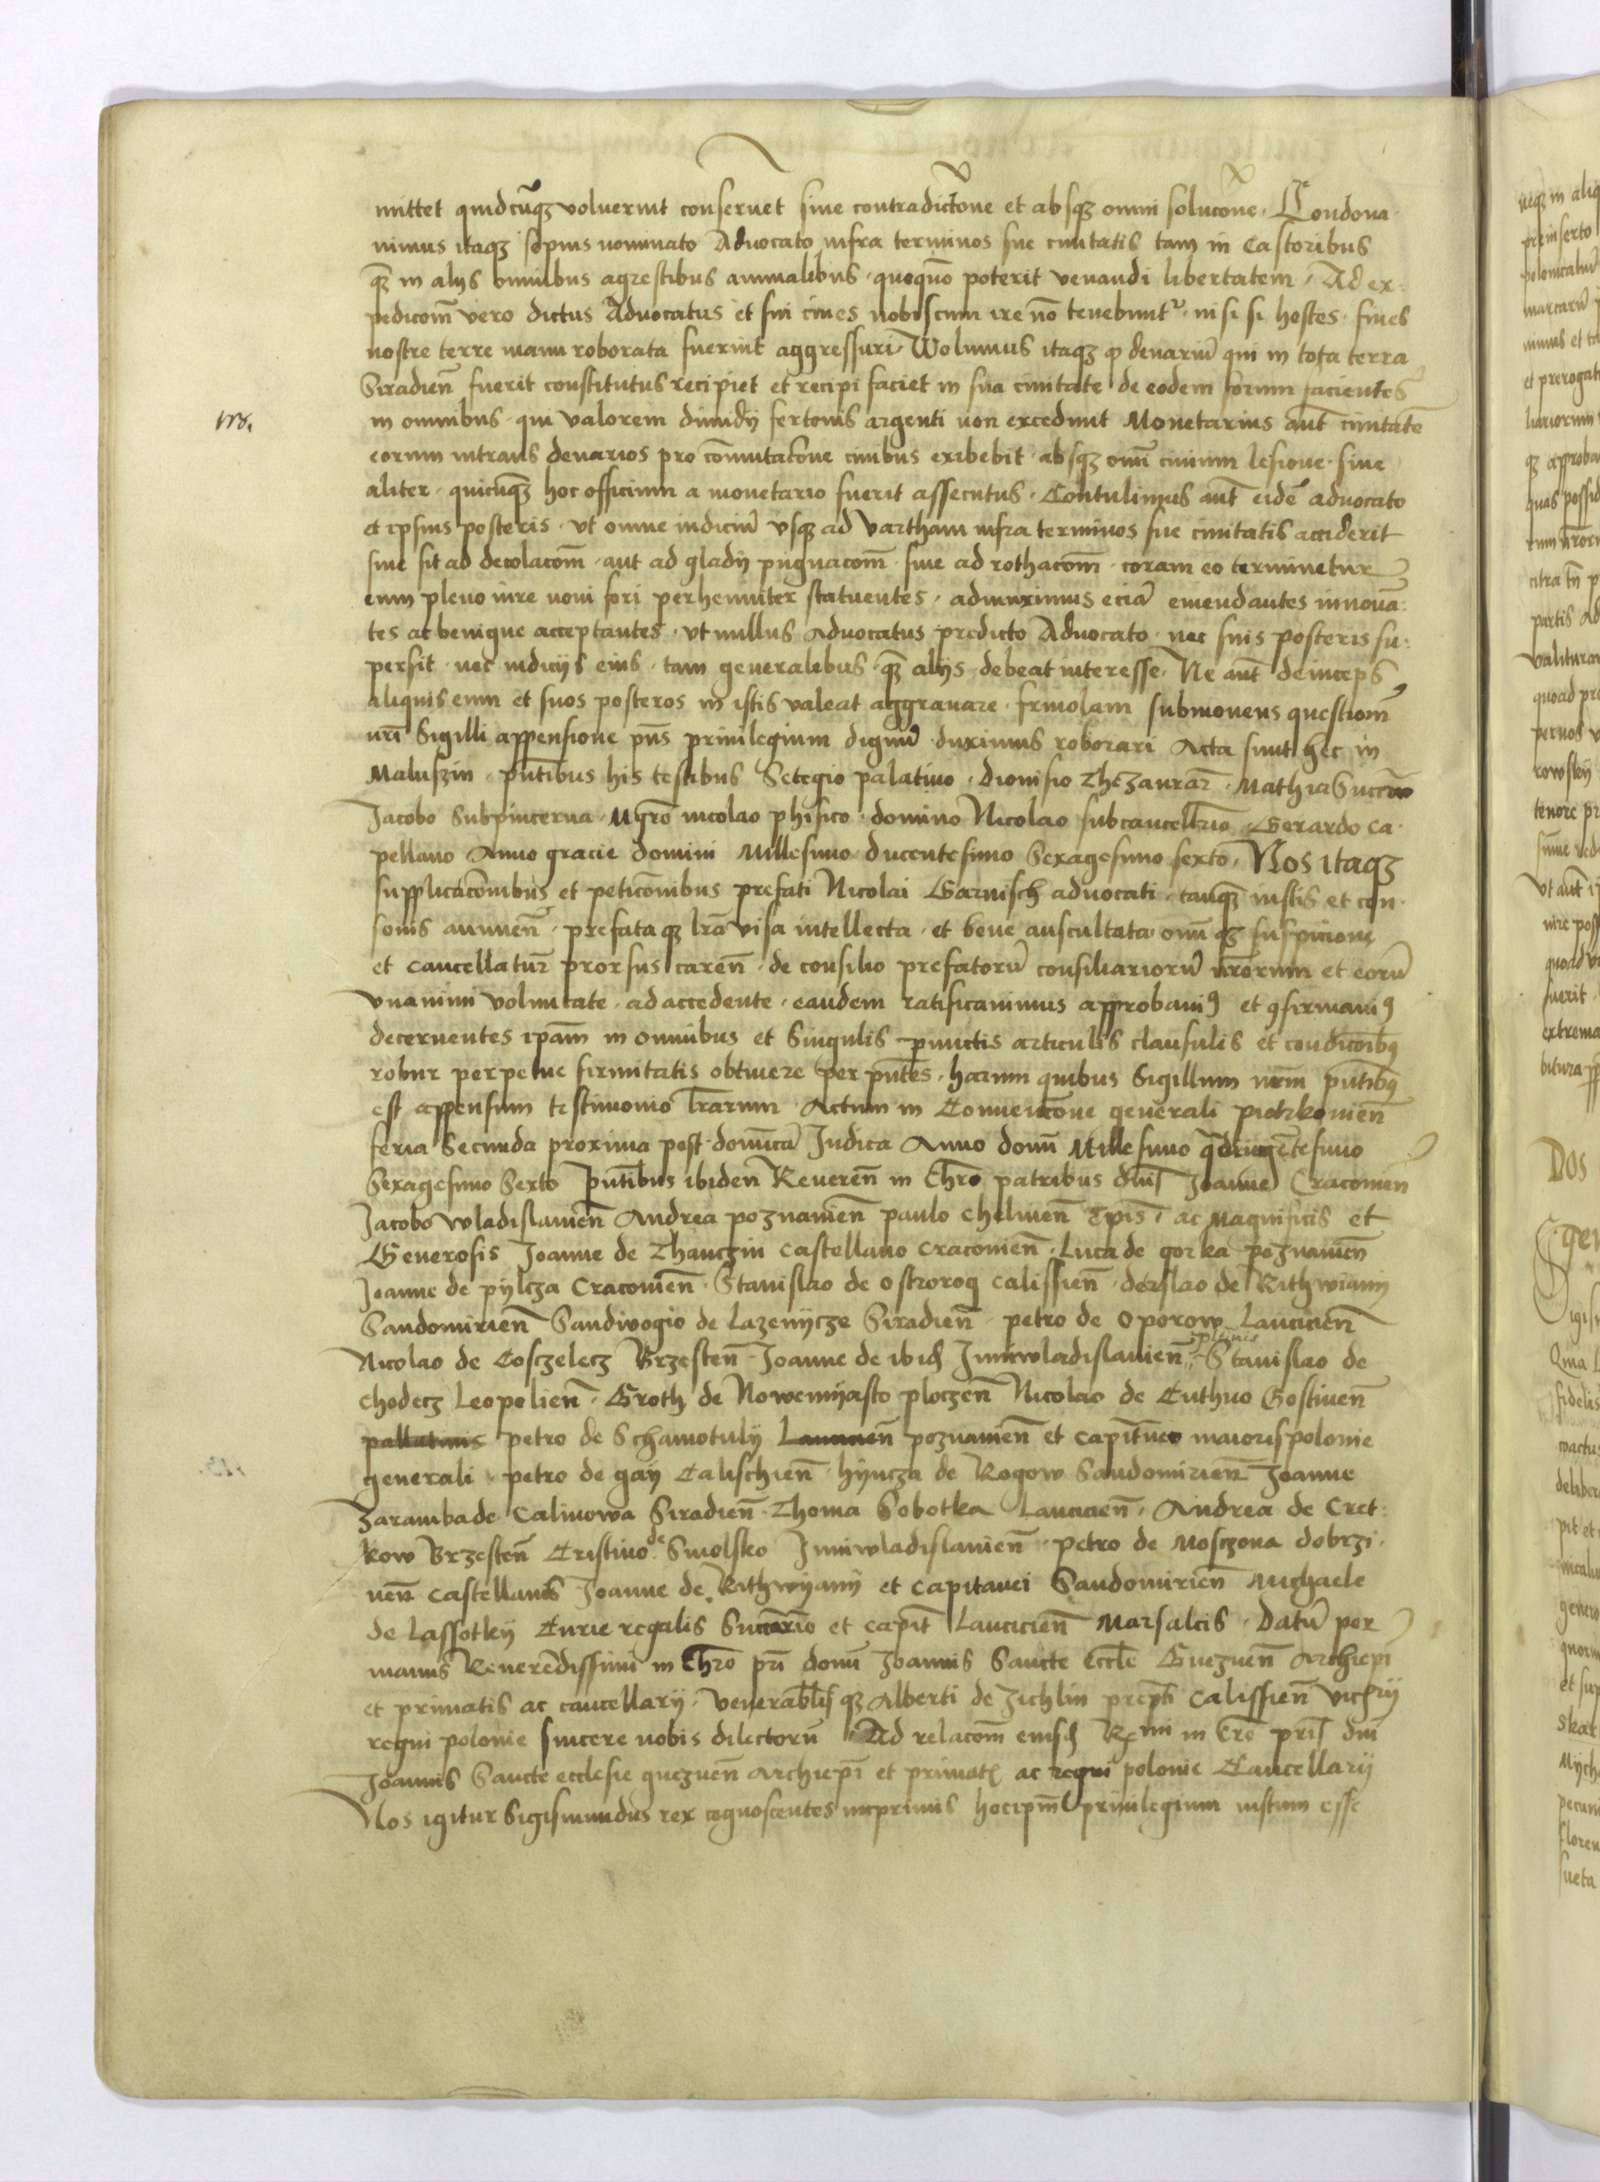 mittet quidcūqȝ voluerint conseruet sine contradictōne et absqȝ omni solucōne · Condona·
nimus itaqȝ sepius nominato Aduocato infra terminos sue ciuitatis tam in Castoribus
qȝ in alijs omnibus agrestibus animalibus · quoquō poterit venandi libertatem · Ad ex:
pedicōm vero dictus Aduocatus et sui ciues nobiscum ire nō tenebunt͛ · nisi si hostes · fines
nostre terre manu roborata fuerint aggressuri · Wolumus itaqȝ ꝙ denariū qui in tota terra
Siradien̄ fuerit constitutus recipiet et recipi faciet in sua ciuitate de eodem forum facientes
in omnibus · qui valorem dimidij fertonis argenti non excedunt Monetarius aūt ciuitatē
eorum intrans denarios pro cōmutacōne ciuibus exibebit · absqȝ omī ciuium lesione · siue
aliter · quicūqȝ hoc officium a monetario fuerit assecutus · Contulimus aūt eidē aduocato
et ipsius posteris · vt omne iudiciū vsqȝ ad Vartham infra terminos sue ciuitatis acciderit
siue sit ad decolacōm · aut ad gladij pugnacōm · siue ad rothacōm · coram eo terminetur
eum pleno iure noui fori perhenniter statuentes · adiunximus eciā emendantes innouā:
tes ac benigne acceptantes · vt nullus Aduocatus predicto Aduocato · nec suis posteris su:
persit · nec iudicijs eius · tam generalibus · qȝ alijs · debeat interesse · Ne aūt deinceps
aliquis eum et suos posteros in istis valeat aggrauare · friuolam submouens questiom̄
nr̄i Sigilli appensione pn̄s priuilegium dignū duximus roborari Acta sunt hec in
Maluszin · pn̄tibus his testibus Setegio palatino · Dionisio Thezaurar̄ · Mathia Succ̄io
Jacobo Subpincerna · Mgrō nicolao phisico · domino Nicolao subcancellr̄io · Gerardo Ca·
pellano Anno gracie domini Millesimo ducentesimo Sexagesimo sexto · Nos itaqȝ
supplicacōnibus et peticōnibus prefati Nicolai Garnisch aduocati · tanqȝ iustis et con·
sonis annuen̄ · prefata qȝ lr̄a visa intellecta · et bene auscultata om̄i qȝ suspicione
et cancellatur̄ prorsus caren̄ · de consilio prefatorū consiliariorū nr̄orum et eorū
vnanimi voluntate · ad accedente · eandem ratificauimus approbauiꝰ et ꝯfirmauiꝰ
decernentes ipām in omnibus et Singulis punctis articulis clausulis et condicōibꝰ
robur perpetue firmitatis obtinere per pn̄tes · harum quibus Sigillum nr̄m pn̄tibꝰ
est appensum testimonio lr̄arum · Actum in Conuencōne generali piotrkouien̄
feria Secunda proxima post · domīcā Judica Anno domī Millesimo qūdringētesimo
Sexagesimo Sexto pn̄tibus ibidem Reueren̄ in Chrō patribus dn̄is Joanne Cracouien̄
Jacobo wladislauien̄ Andrea poznanien̄ paulo Chelmen̄ Ep̄is · ac Magnificis et
Generosis Joanne de Thanczin Castellano Cracouien̄ · Luca de gorka poznanien̄
Joanne de pylcza Cracouien̄ · Stanislao de ostrorog Calissien̄ · derslao de Rithwiany
Sandomirien̄ Sandiwogio de Lazenijcze Siradien̄ · petro de Oporow Lancicien̄
Nicolao de Cosczelecz Brzesten̄ · Joanne de ibiđ Juniwladislauien̄ · Stanislao de
Chodecz Leopolien̄ · Groth de Nowemyasto ploczen̄ Nicolao de Cuthno Gostinen̄
pallatinis petro de Schamotulij Lancicien̄ poznanien̄ et capitneo maioris polonie
generali · petro de gaij Calischien̄ · hyncza de Rogow Sandomirien̄ Joanne
Zaramba de Calinowa Siradien̄ · Thoma Sobotka Lancicien̄ · Andrea de Cret:
kow Brzesten̄ Cristino de Smolsko Juniwladislauien̄ · petro de Mosczona dobrzi·
nen̄ Castellanis Joanne de Rithwyany et Capitanei Sandomirien̄ Michaele
de Lassotky Curie regalis Succār̄io et Capit̄ Lancicien̄ Marsalcis · Datū per
manus Reuerēdissimi in Chrō pr̄i domī Joannis Sancte Eccl̄e Gneznen̄ Archiep̄i
et primatis ac cancellarij · Venerabl̄isqȝ Alberti de Zichlin prep̄ti Calissien̄ vicēcy
regni polonie sincere nobis dilectorū Ad relacōm eiusđ Rmi in Crō pr̄is dn̄i
Joannis Sancte ecclesie gneznen̄ Archiep̄i et primatꝭ ac regni polonie Cancellarij
Nos igitur Sigismundus rex cognoscentes inprimis hoc ip̄m priuilegium iustum esse